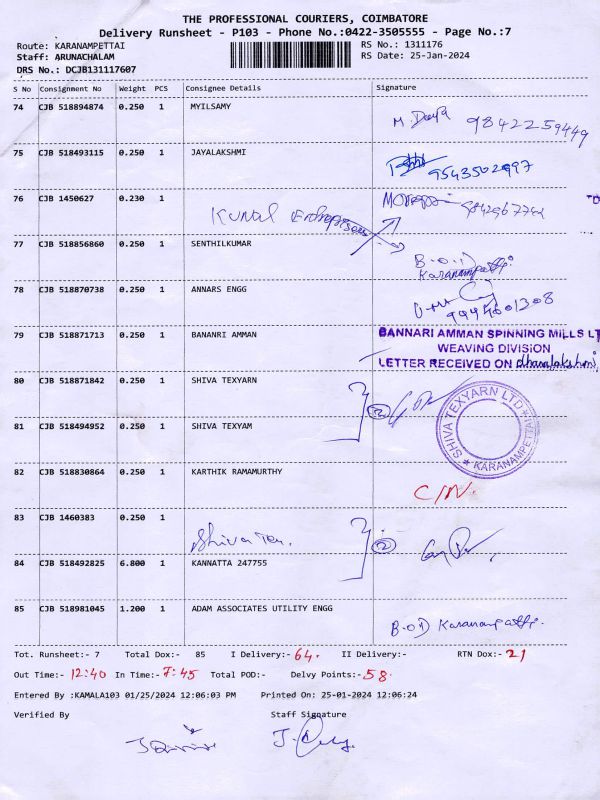 THE PROFESSIONAL COURIERS, COIMBATORE
Delivery Runsheet - P103 - Phone No.:0422-3505555 - Page No.:7
Route: KARANAMPETTAI RS No.: 1311176
Staff: ARUNACHALAM RS Date: 25-Jan-2024
DRS No.: DCJB131117607
S No Consignment No Weight PCS Consignee Details Signature
74 CJB 518894874 0.250 1 MYILSAMY
M. Deepa 9842259449
75 CJB 518493115 0.250 1 JAYALAKSHMI
9543502997
76 CJB 1450627 0.230 1
Kunal Enterprises
77 CJB 518856860 0.250 1 SENTHILKUMAR
B.O.D
78 CJB 518870738 0.250 1 ANNARS ENGG
79 CJB 518871713 0.250 1 BANANRI AMMAN
BANNARI AMMAN SPINNING MILLS LT
WEAVING DIVISION
LETTER RECEIVED ON dhanalakshmi
80 CJB 518871842 0.250 1 SHIVA TEXYARN
2
SHIVA TEXYARN LTD * KARANAMPETTAI *
81 CJB 518494952 0.250 1 SHIVA TEXYAM
82 CJB 518830864 0.250 1 KARTHIK RAMAMURTHY
C/N.
83 CJB 1460383 0.250 1
Shiva Tex.
2
84 CJB 518492825 6.800 1 KANNATTA 247755
85 CJB 518981045 1.200 1 ADAM ASSOCIATES UTILITY ENGG
B.O.D
Tot. Runsheet:- 7 Total Dox:- 85 I Delivery:- 64. II Delivery:- RTN Dox:- 21
Out Time:- 12:40 In Time:- 7:45 Total POD:- Delvy Points:- 58.
Entered By :KAMALA103 01/25/2024 12:06:03 PM Printed On: 25-01-2024 12:06:24
Verified By Staff Signature